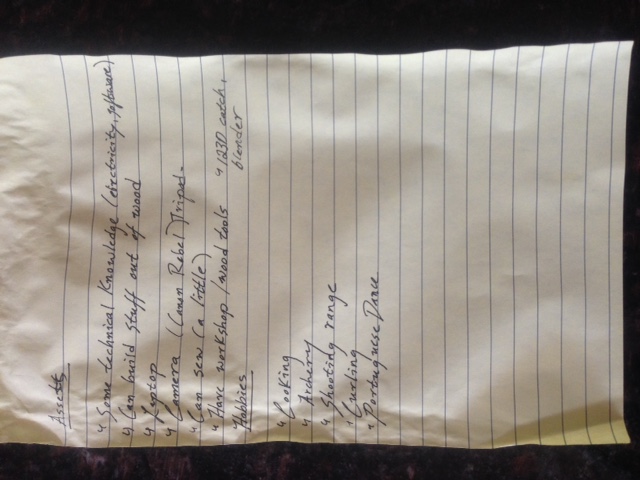 Assets
Some technical Knowledge (electricity, software)
Can build stuff out of wood
Laptop
Camera (Canon Rebel) Tripod.
Can sew (a little)
Have workshop / wood tools
123D catch,
blender
Hobbies
Cooking
Archery
Shooting range
Curling
Portuguese Dance